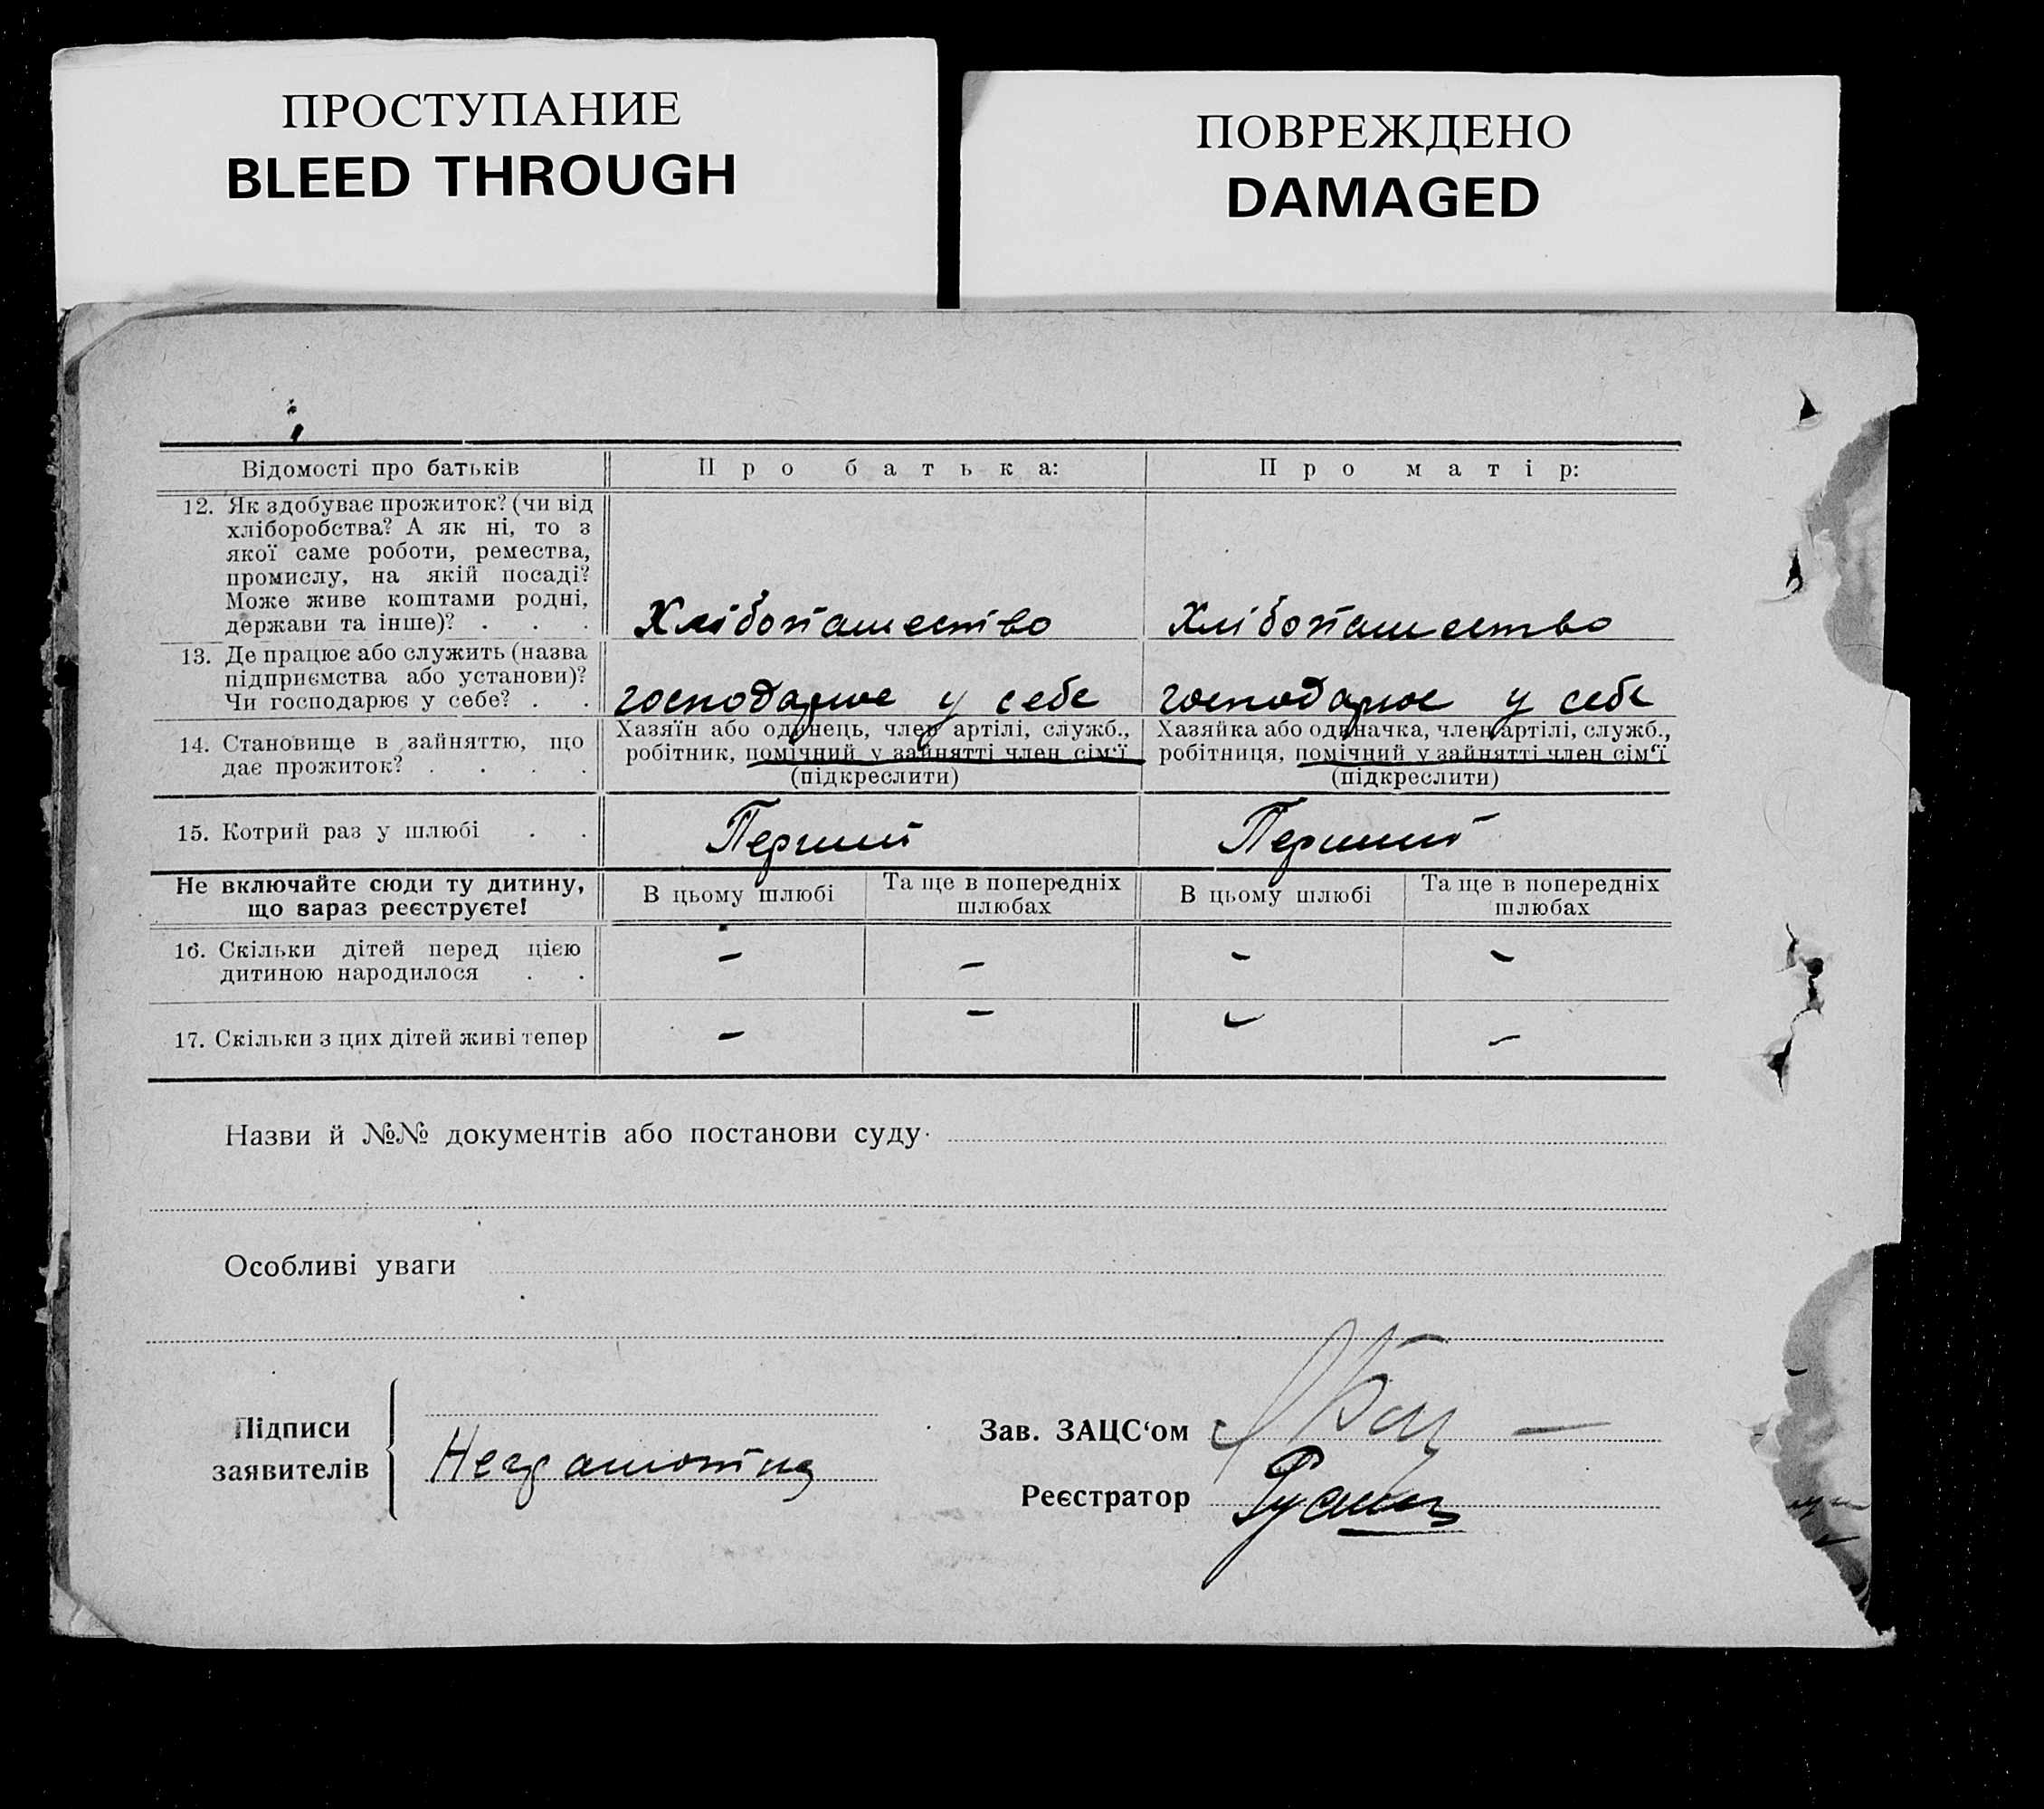 ПРОСТУПАНИЕ
BLEED THROUGH
ПОВРЕЖДЕНО
DAMAGED
Відомості про батьків
Про батька:
Про матір:
12. Як здобуває прожиток? (чи від
хліборобства? А як ні, то з
якої саме роботи, ремества,
промислу, на якій посаді?
Може живе коштами родні,
держави та інше)? . . .
Хлібопашество
Хлібопашество
13. Де працює або служить (назва
підприємства або установи)?
Чи господарює у себе? . .
господарює у себе
господарює у себе
14. Становище в зайняттю, що
дає прожиток? . . . .
Хазяїн або одинець, член артілі, служб.,
робітник, помічний у зайнятті член сім‘ї
(підкреслити)
Хазяйка або одиначка, член артілі, служб.,
робітниця, помічний у зайнятті член сім‘ї
(підкреслити)
15. Котрий раз у шлюбі . .
Перший
Перший
Не включайте сюди ту дитину,
що зараз реєструєте!
В цьому шлюбі
Та ще в попередніх
шлюбах
В цьому шлюбі
Та ще в попередніх
шлюбах
16. Скільки дітей перед цією
дитиною народилося . .
– – – –
17. Скільки з цих дітей живі тепер
– – – –
Назви й №№ документів або постанови суду
Особливі уваги
Підписи
заявителів
Неграмотна
Зав. ЗАЦС‘ом
Реєстратор